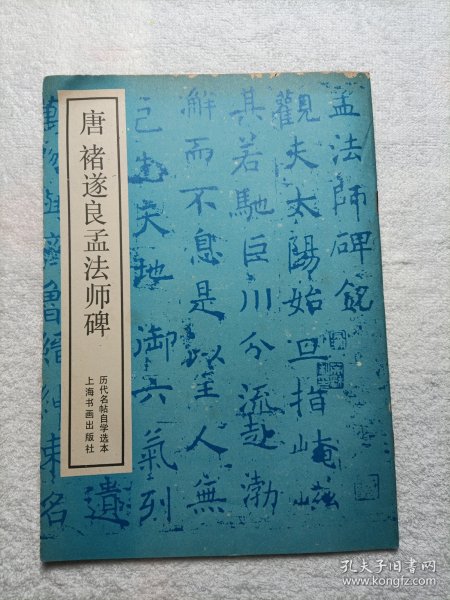 唐 褚遂良孟法师碑
历代名帖自学选本
上海书画出版社
孟法師碑銘
觀夫太陽始旦指崦嵫
其若馳巨川分流赴渤
澥而不息是以至人無
己乘天地御六氣列
遺
孔夫子旧书网
www.kongfz.com